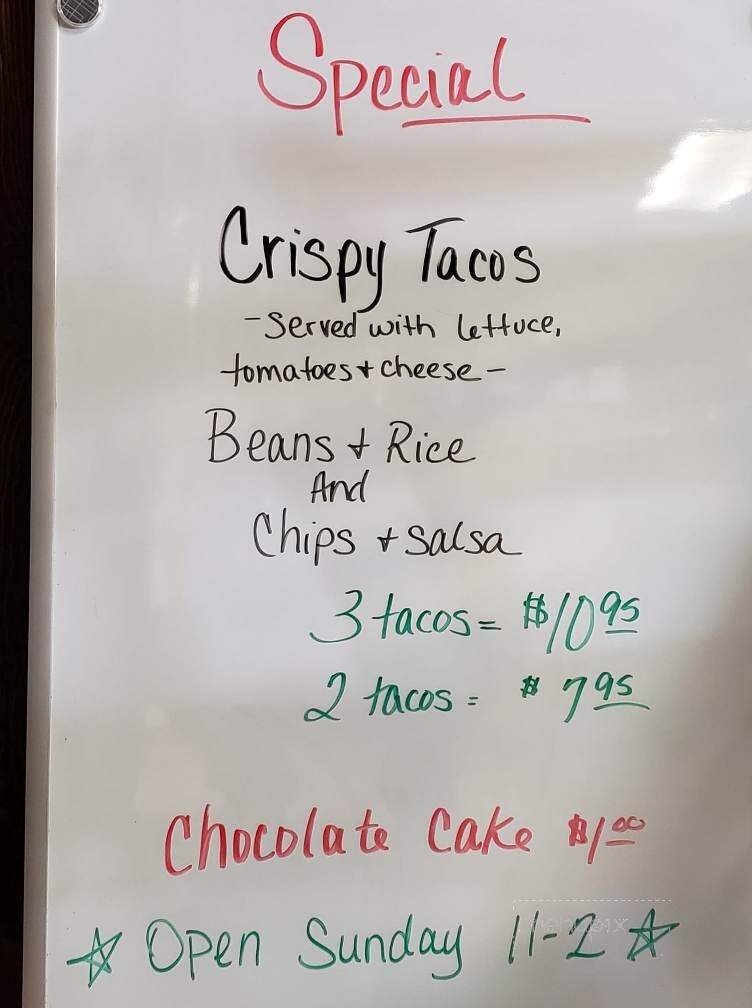 Special
Crispy Tacos
-Served with lettuce,
tomatoes + cheese -
Beans + Rice
And
Chips + Salsa
3 tacos = $10 95
2 tacos = $7 95
Chocolate Cake $1.00
☆ Open Sunday 11-2 ☆